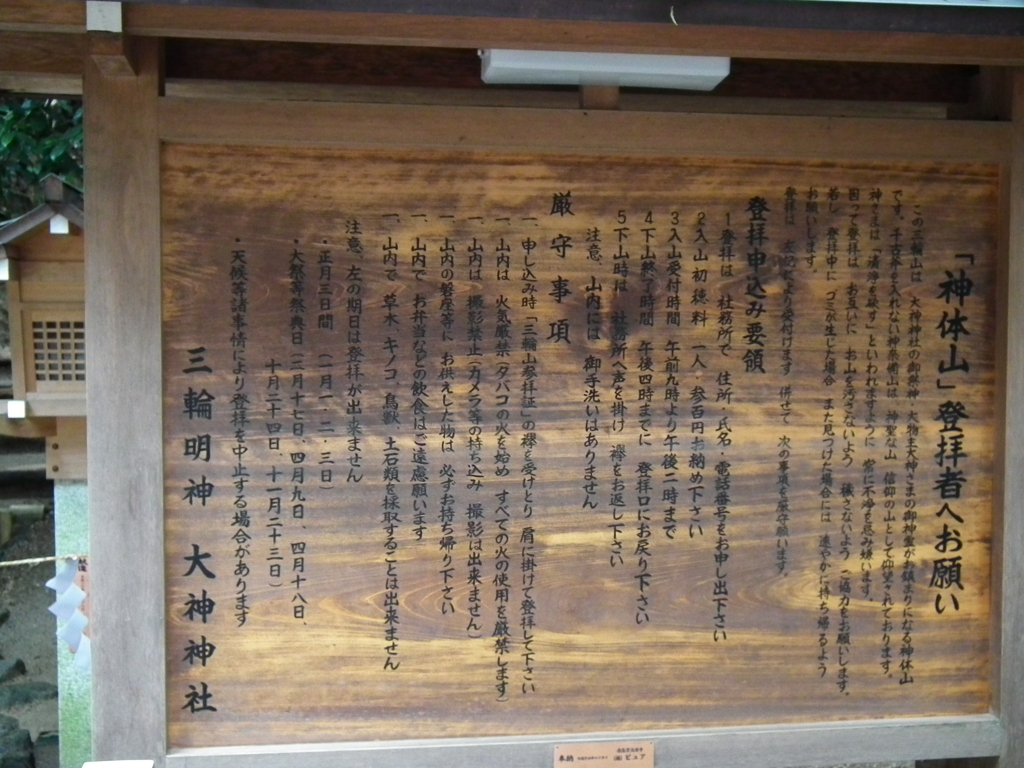 「神体山」登拝者へお願い
この三輪山は 大神神社の御祭神 大物主大神さまの御神霊がお鎮まりになる神体山
です。千古斧を入れない神奈備山は 神聖な山 信仰の山として仰望されております。
神さまは「清浄を最す」といわれますように 常に不浄を忌み嫌います。
因って登拝は お互いに お山を汚さないよう 穢さないよう ご協力をお願いします。
若し 登拝中に ゴミが生じた場合 また見つけた場合には 速やかに持ち帰るよう
お願いします。
登拝は 左記により受付けます 併せて 次の事項を厳守願います。
登拝申込み要領
1登拝は 社務所で 住所・氏名・電話番号をお申し出下さい
2入山初穂料 一人 参百円お納め下さい
3入山受付時間 午前九時より午後二時まで
4下山終了時間 午後四時までに 登拝口にお戻り下さい
5下山時は 社務所へ声を掛け 襷をお返し下さい
注意 山内には 御手洗いはありません
厳守事項
一、申し込み時「三輪山参拝証」の襷を受けとり 肩に掛けて登拝して下さい
一、山内は 火気厳禁(タバコの火を始め すべての火の使用を厳禁します)
一、山内は 撮影禁止(カメラ等の持ち込み 撮影は出来ません)
一、山内の磐座等に お供えした物は 必ずお持ち帰り下さい
一、山内で お弁当などの飲食はご遠慮願います
一、山内で 草木、キノコ、鳥獣、土石類を採取することは出来ません
注意、左の期日は登拝が出来ません
・正月三日間 (一月一・二・三日)
・大祭等祭典日(二月十七日、四月九日、四月十八日、
十月二十四日、十一月二十三日)
・天候等諸事情により登拝を中止する場合があります
三輪明神 大神神社
奉納
ピュア